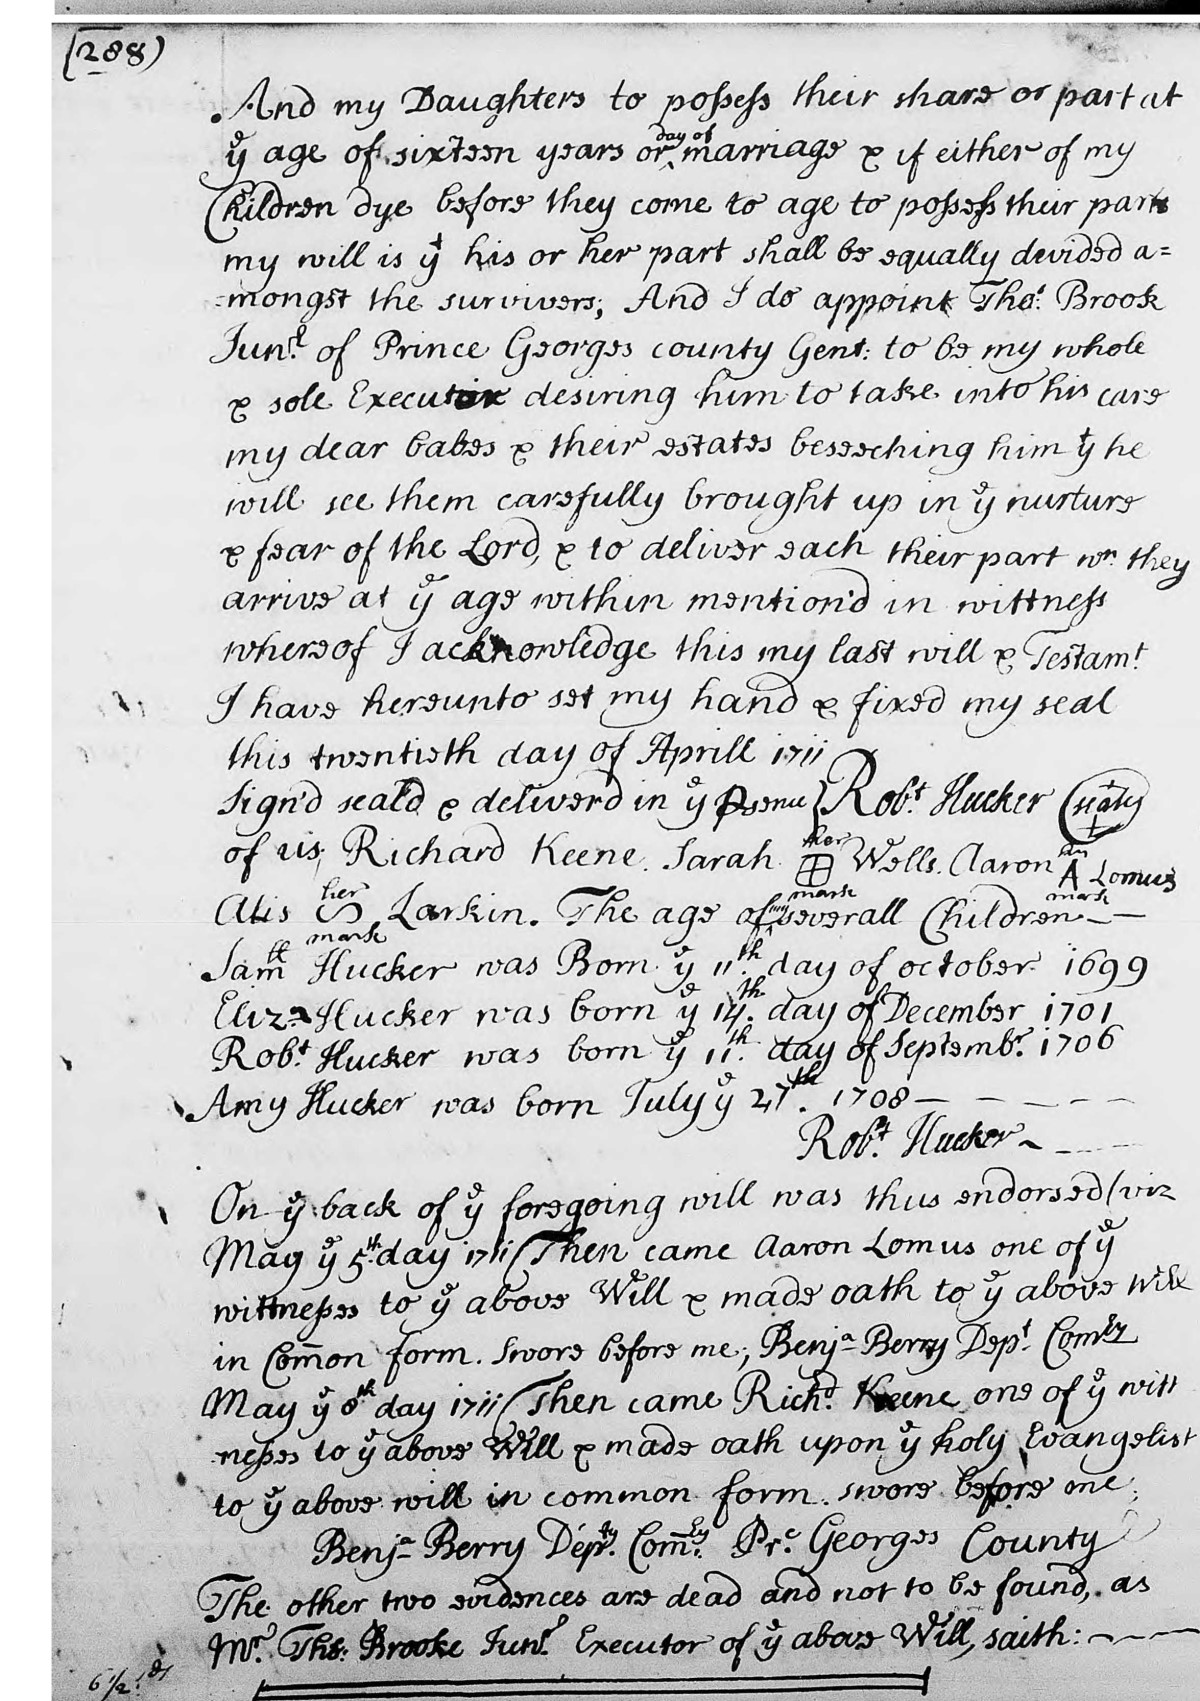 (288)
And my Daughters to possess their share or part at
ye age of sixteen years or day of marriage & if either of my
Children dye before they come to age to possess their parts
my will is yt his or her part shall be equally devided a=
mongst the survivers; And I do appoint Thos: Brook
Junr. of Prince Georges county Gent: to be my whole
& sole Executor desiring him to take into his care
my dear babes & their estates beseeching him yt he
will see them carefully brought up in ye nurture
& fear of the Lord, & to deliver each their part wn. they
arrive at ye age within mention'd in wittness
whereof I acknowledge this my last will & Testamt.
I have hereunto set my hand & fixed my seal
this twentieth day of Aprill 1711
Sign'd seal'd & deliver'd in ye Robt. Hucker
of us, Richard Keene. Sarah her mark Wells. Aaron his A mark Lomus
Alis her mark Larkin. The age of my severall Children — —
Samll Hucker was Born ye 11th. day of october 1699
Eliza Hucker was born ye 14th. day of December 1701
Robt. Hucker was born ye 11th. day of Septembr. 1706
Amy Hucker was born July ye 27th. 1708 — — — — —
Robt. Hucker — — —
On ye back of ye foregoing will was thus endorsed (viz
May ye 5th. day 1711 (Then came Aaron Lomus one of ye
wittnesses to ye above Will & made oath to ye above Will
in Com̄on form. swore before me, Benja Berry Dept. Comry
May ye 8th day 1711 (Then came Richd. Keene one of ye witt
nesses to ye above Will & made oath upon ye holy Evangelist
to ye above will in common form. swore before me,
Benja Berry Depty. Com̄ry. Prc. Georges County
The other two evidences are dead and not to be found, as
Mr. Tho: Brooke Junr. Executor of ye above Will, saith: — — —
6 1/2